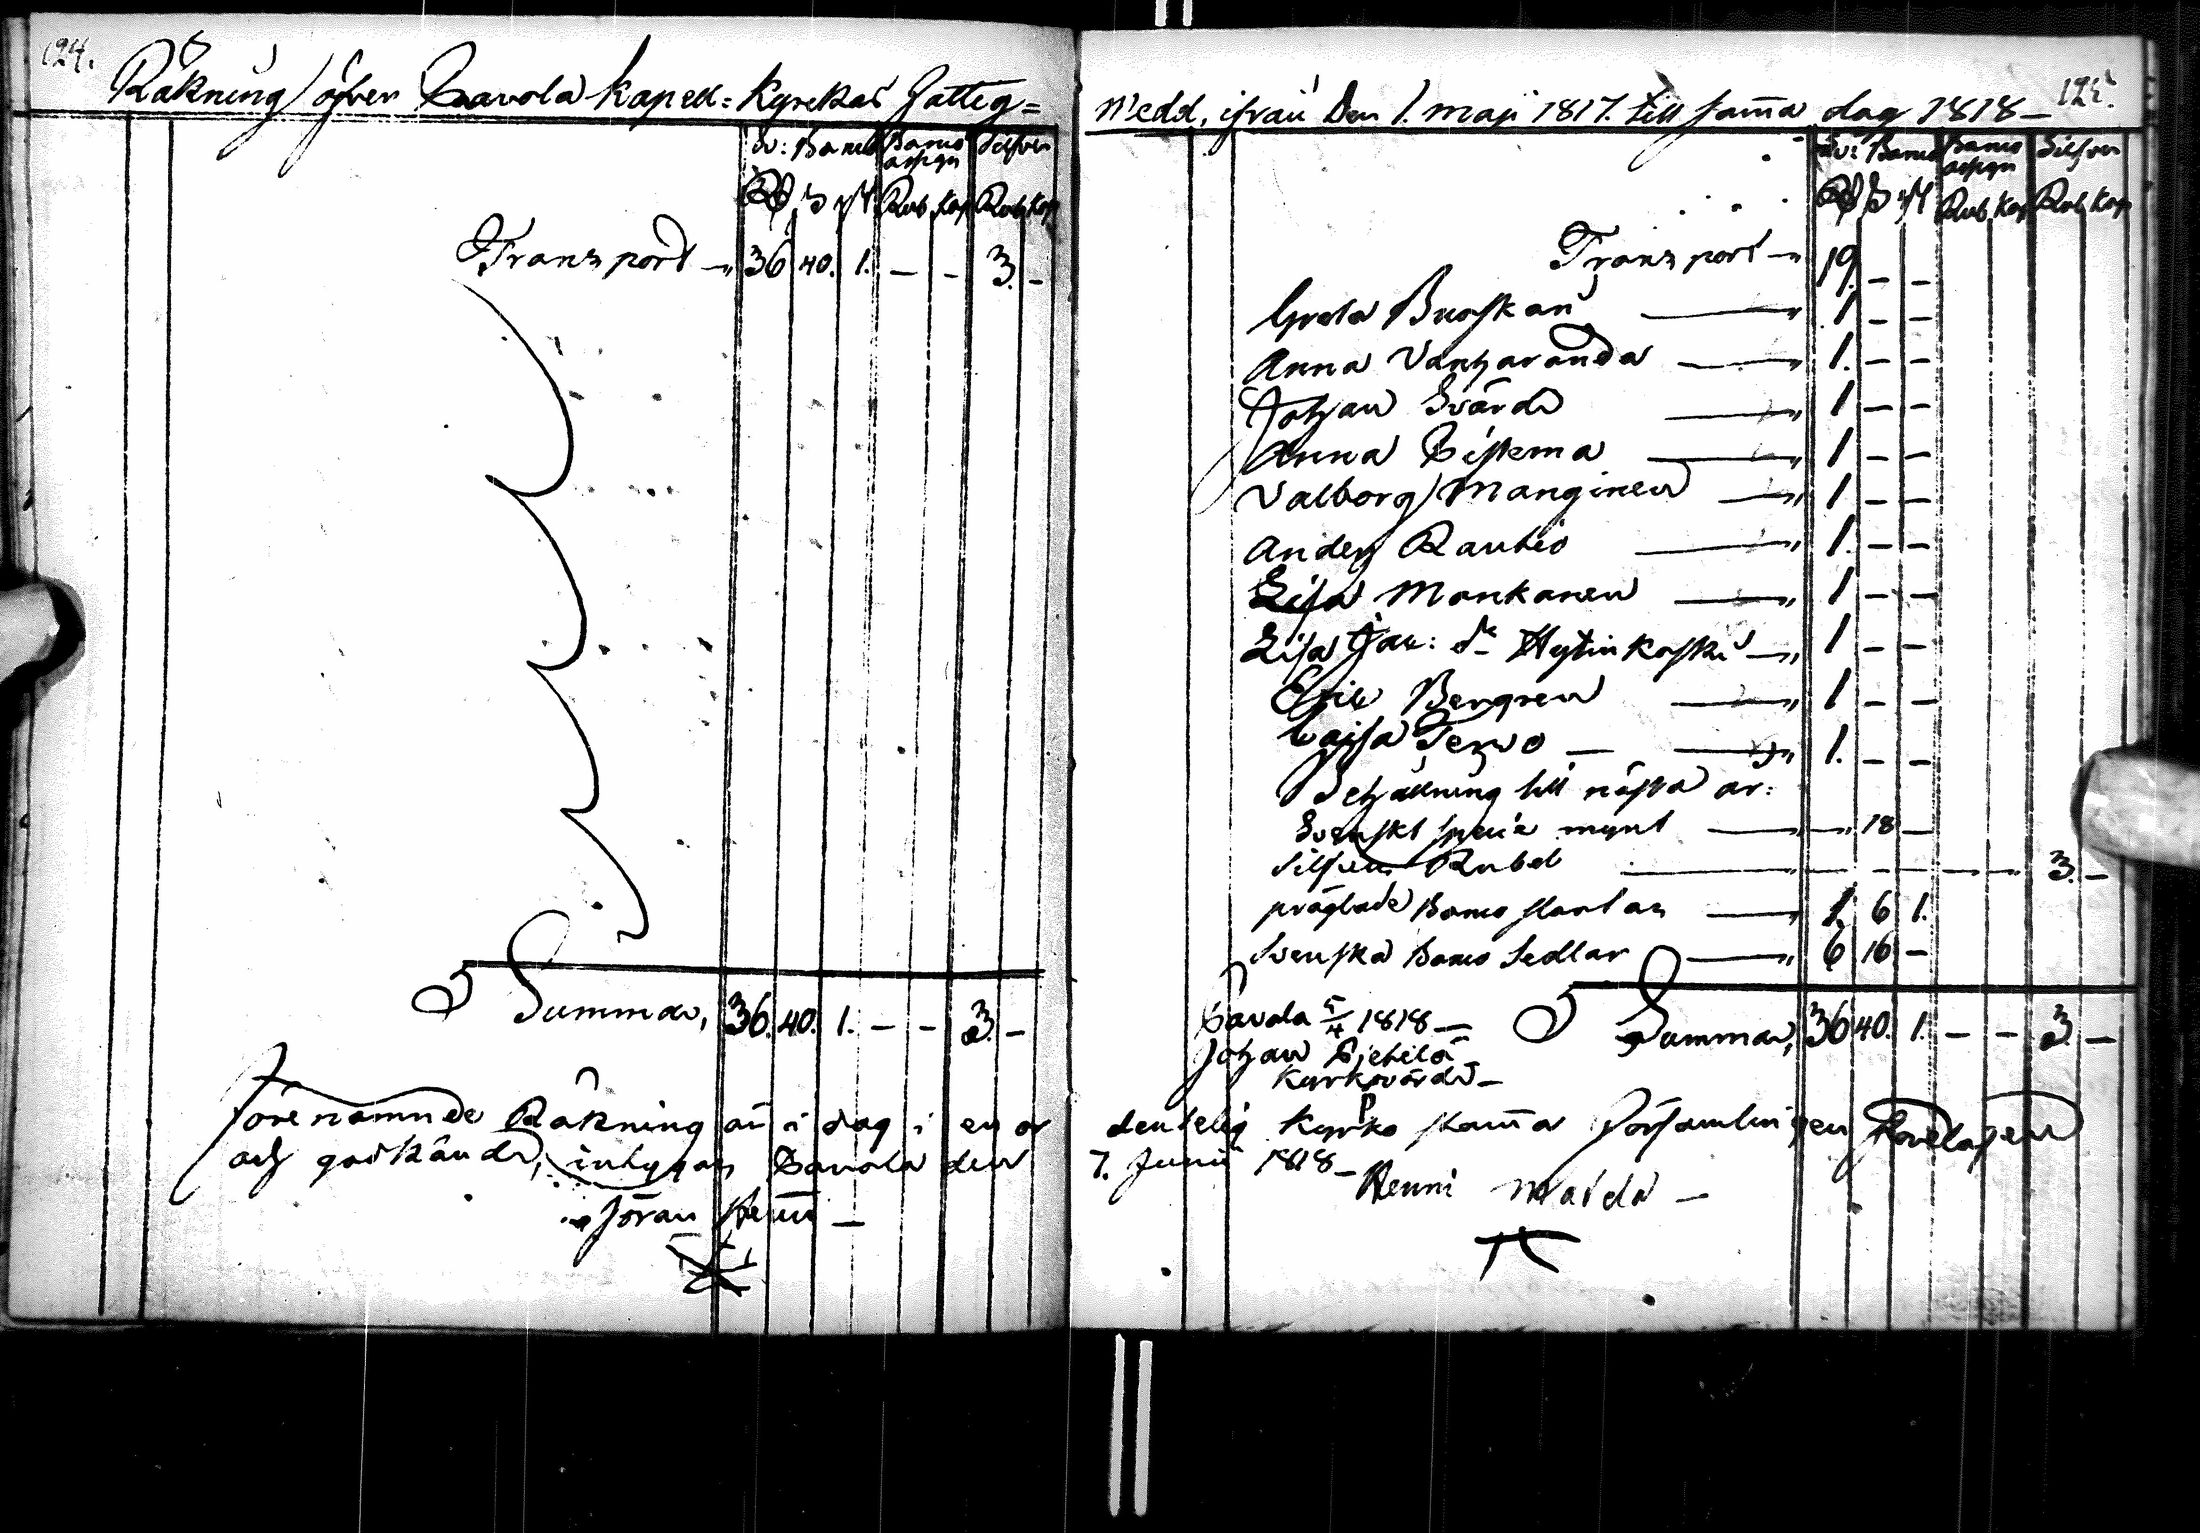 124.
Räkning öfver Savola Kapell= Kyrckas fattig=
Sv: Banco Banco assign Silfver
Rd s rst Rub. kop Rub kop
Transport — 36 40. 1. — — 3. —
Summa, 36. 40. 1. — — 3. —
förenämnde Räkning är i dag i en or
och godkänd, intygar Savola den
Jöran
125.
medel, ifrån den 1. Maji 1817. till samma dag 1818 —
Sv: Banco Banco assign Silfver
Rd s rst Rub. kop Rub kop
Transport — 19. — —
Greta Bruskan — 1 — —
Anna Vanharanda — 1. — —
Johan Svärd — 1 — —
Anna — 1 — —
Valborg Manginen — 1 — —
Anders Rautio — 1. — —
Lisa Monkanen — 1 — —
Lisa Jac: dr — 1 — —
Eric Bergren — 1 — —
Cajsa Tervo — 1. — —
Behållning till nästa år:
Svenskt specie mynt — — 18 —
Silfver Rubel — 3. —
präglade Banco — 1. 6 1.
Svenska Banco Sedlar — 6 16 —
Savola 5/4 1818 — Summa, 36 40. 1. — — 3. —
Johan
Kyrkovärd —
dentelig Kyrko stämma församlingen förelagen
7. Junii 1818 —